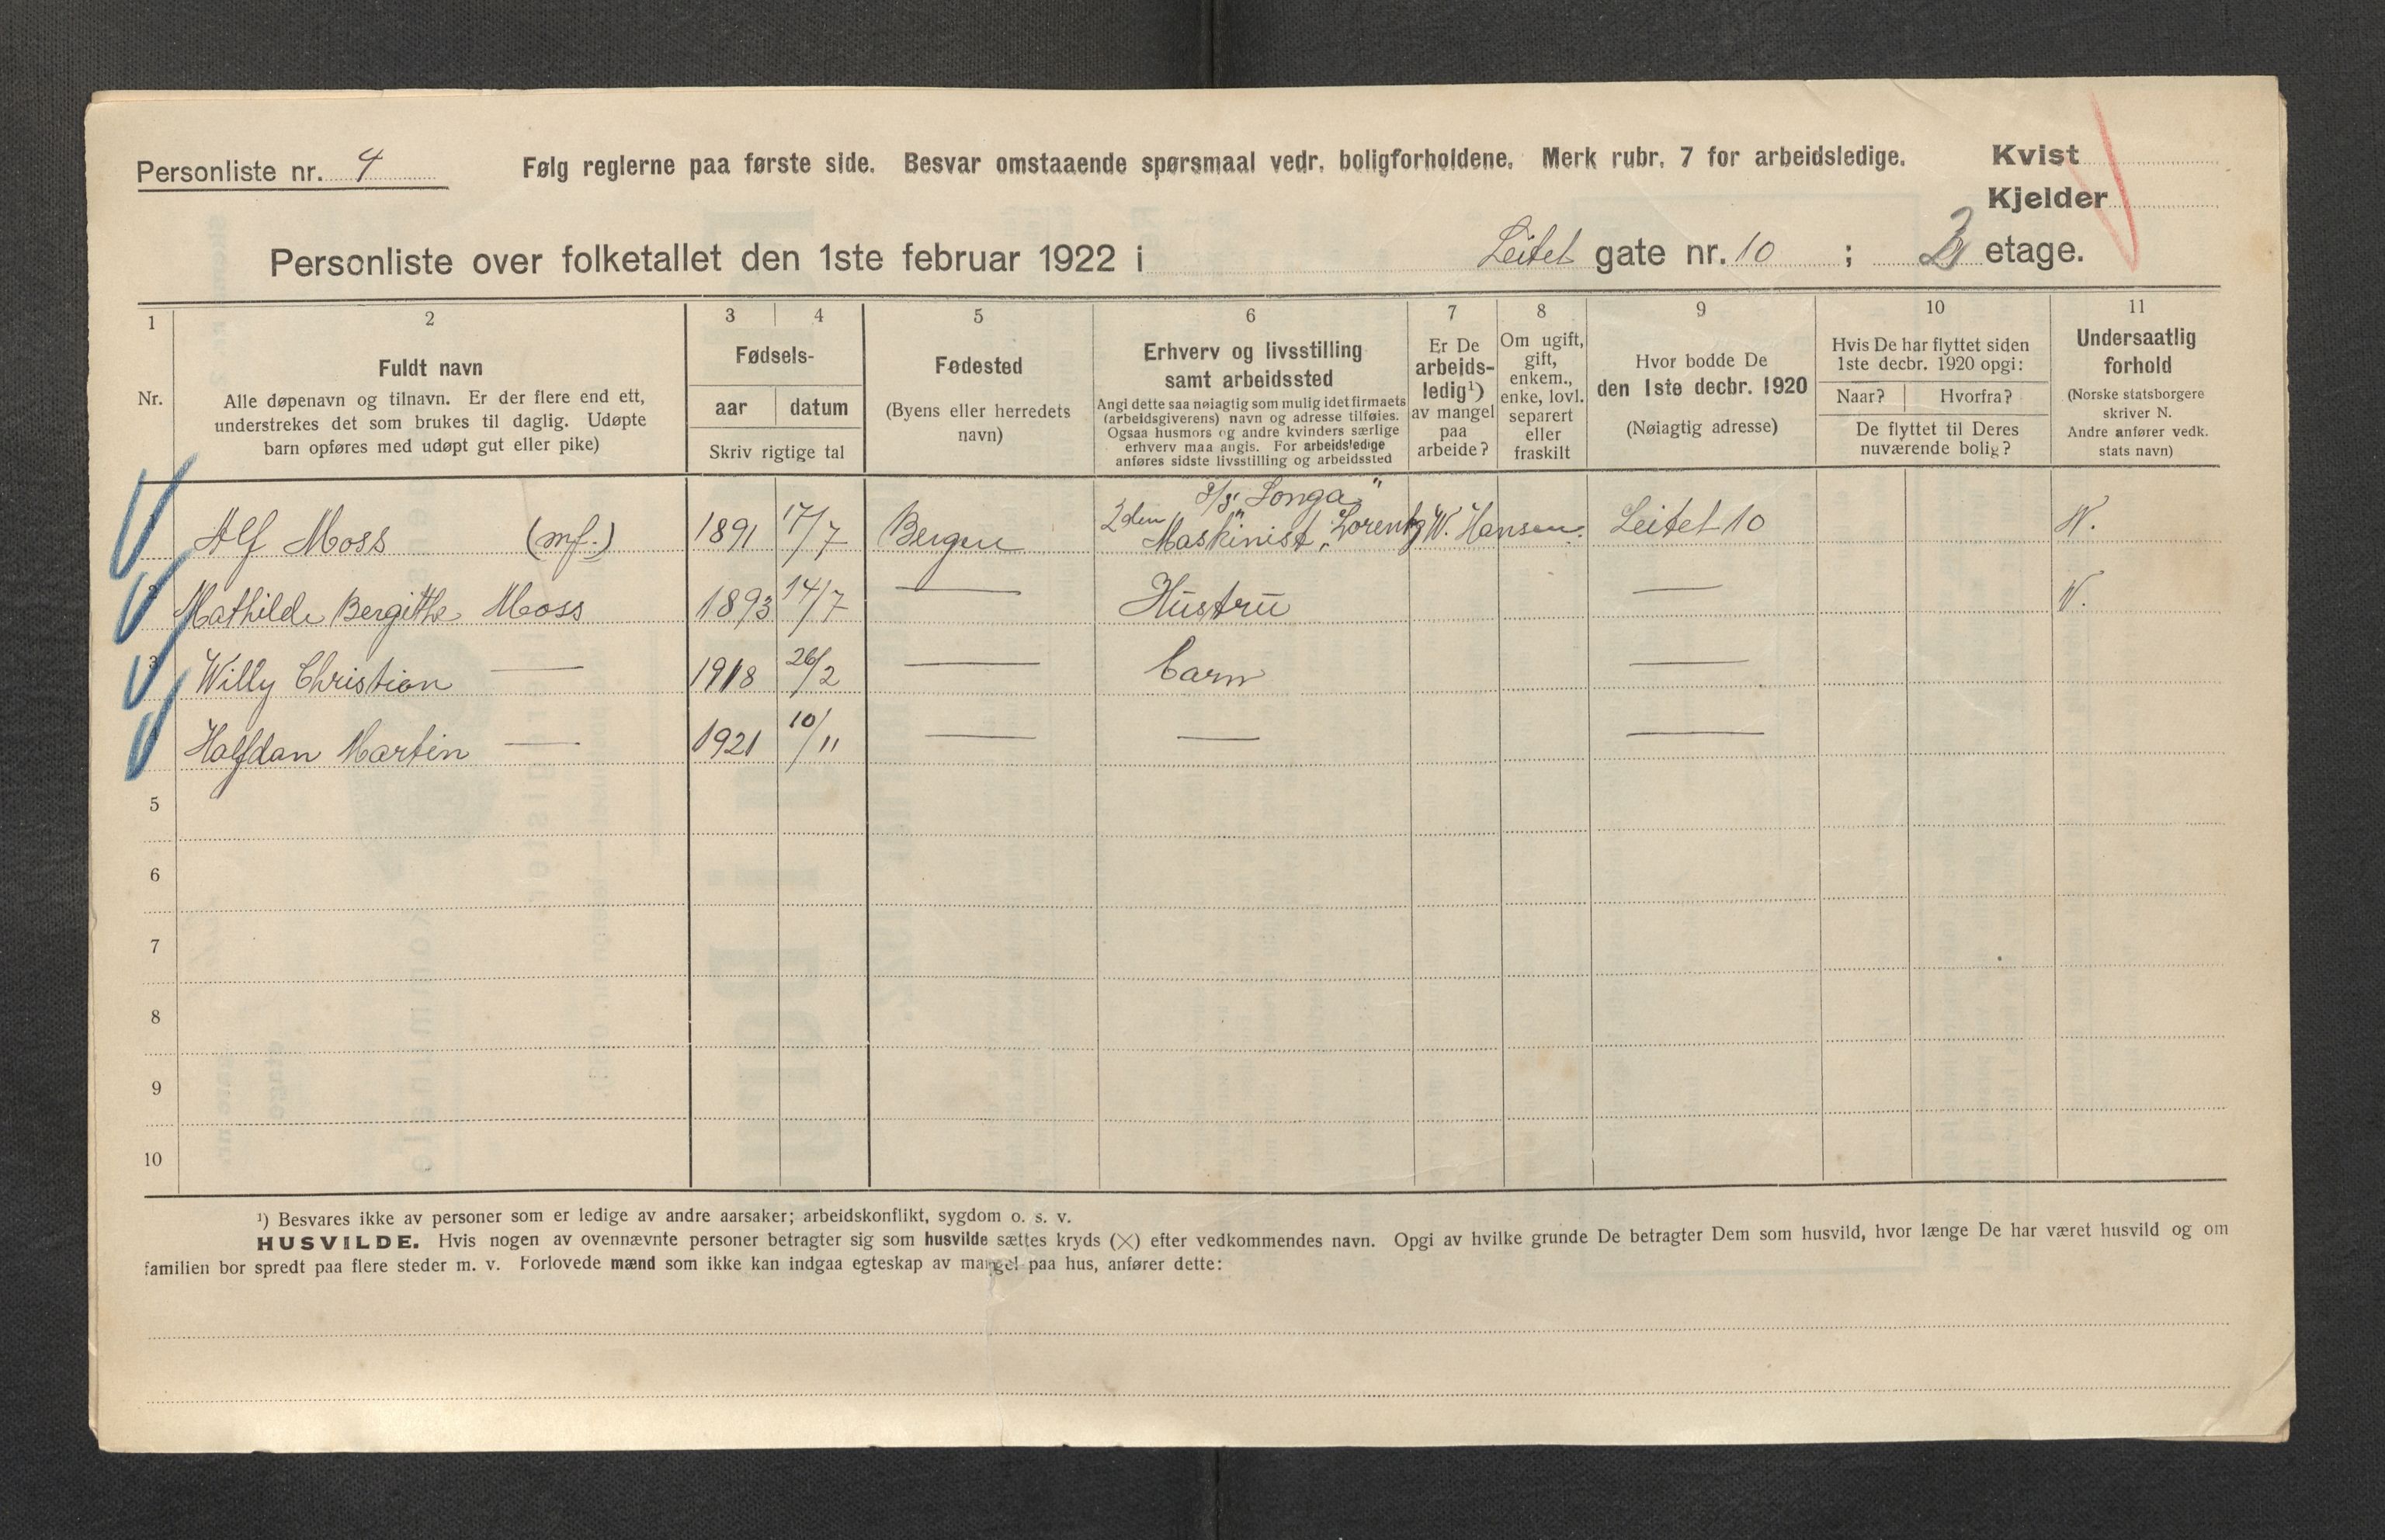 Personliste nr. 4
Følg reglerne paa første side. Besvar omstaaende spørsmaal vedr. boligforholdene. Merk rubr. 7 for arbeidsledige.
Kvist
Kjelder
Personliste over folketallet den 1ste februar 1922 i Leitet gate nr. 10 ; etage.
1 2 3 4 5 6 7 8 9 10 11
Nr.
Fuldt navn
Alle døpenavn og tilnavn. Er der flere end ett,
understrekes det som brukes til daglig. Udøpte
barn opføres med udøpt gut eller pike)
Fødsels-
aar datum
Skriv rigtige tal
Fødested
(Byens eller herredets
navn)
Erhverv og livsstilling
samt arbeidssted
Angi dette saa nøiagtig som mulig idet firmaets
(arbeidsgiverens) navn og adresse tilføies.
Ogsaa husmors og andre kvinders særlige
erhverv maa angis. For arbeidsledige
anføres sidste livsstilling og arbeidssted
Er De
arbeids-
ledig¹)
av mangel
paa
arbeide?
Om ugift,
gift,
enkem.,
enke, lovl.
separert
eller
fraskilt
Hvor bodde De
den 1ste decbr. 1920
(Nøiagtig adresse)
Hvis De har flyttet siden
1ste decbr. 1920 opgi:
Naar? Hvorfra?
De flyttet til Deres
nuværende bolig?
Undersaatlig
forhold
(Norske statsborgere
skriver N.
Andre anfører vedk.
stats navn)
S/S "Songa"
Alf Moss (mf.) 1891 17/7 Bergen 2den Maskinist, Lorentz W. Hansen. Leitet 10 N.
Mathilde Bergithe Moss 1893 14/7 — Hustru — N.
3 Willy Christian — 1918 26/2 — barn —
Halfdan Martin — 1921 10/11 — — —
5
6
7
8
9
10
¹) Besvares ikke av personer som er ledige av andre aarsaker; arbeidskonflikt, sygdom o. s. v.
HUSVILDE. Hvis nogen av ovennævnte personer betragter sig som husvilde sættes kryds (×) efter vedkommendes navn. Opgi av hvilke grunde De betragter Dem som husvild, hvor længe De har været husvild og om
familien bor spredt paa flere steder m. v. Forlovede mænd som ikke kan indgaa egteskap av mangel paa hus, anfører dette: